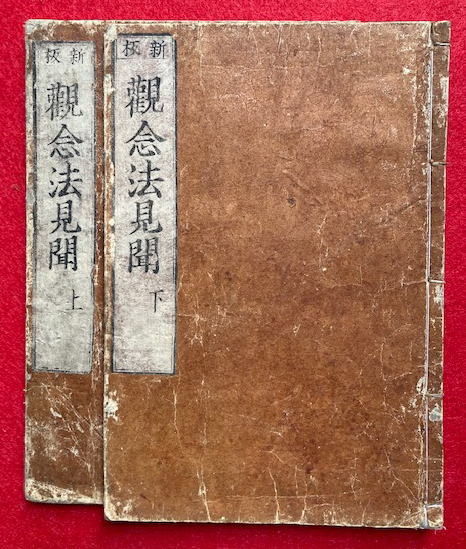 新板
觀念法見聞 下
新板
觀念法見聞 上